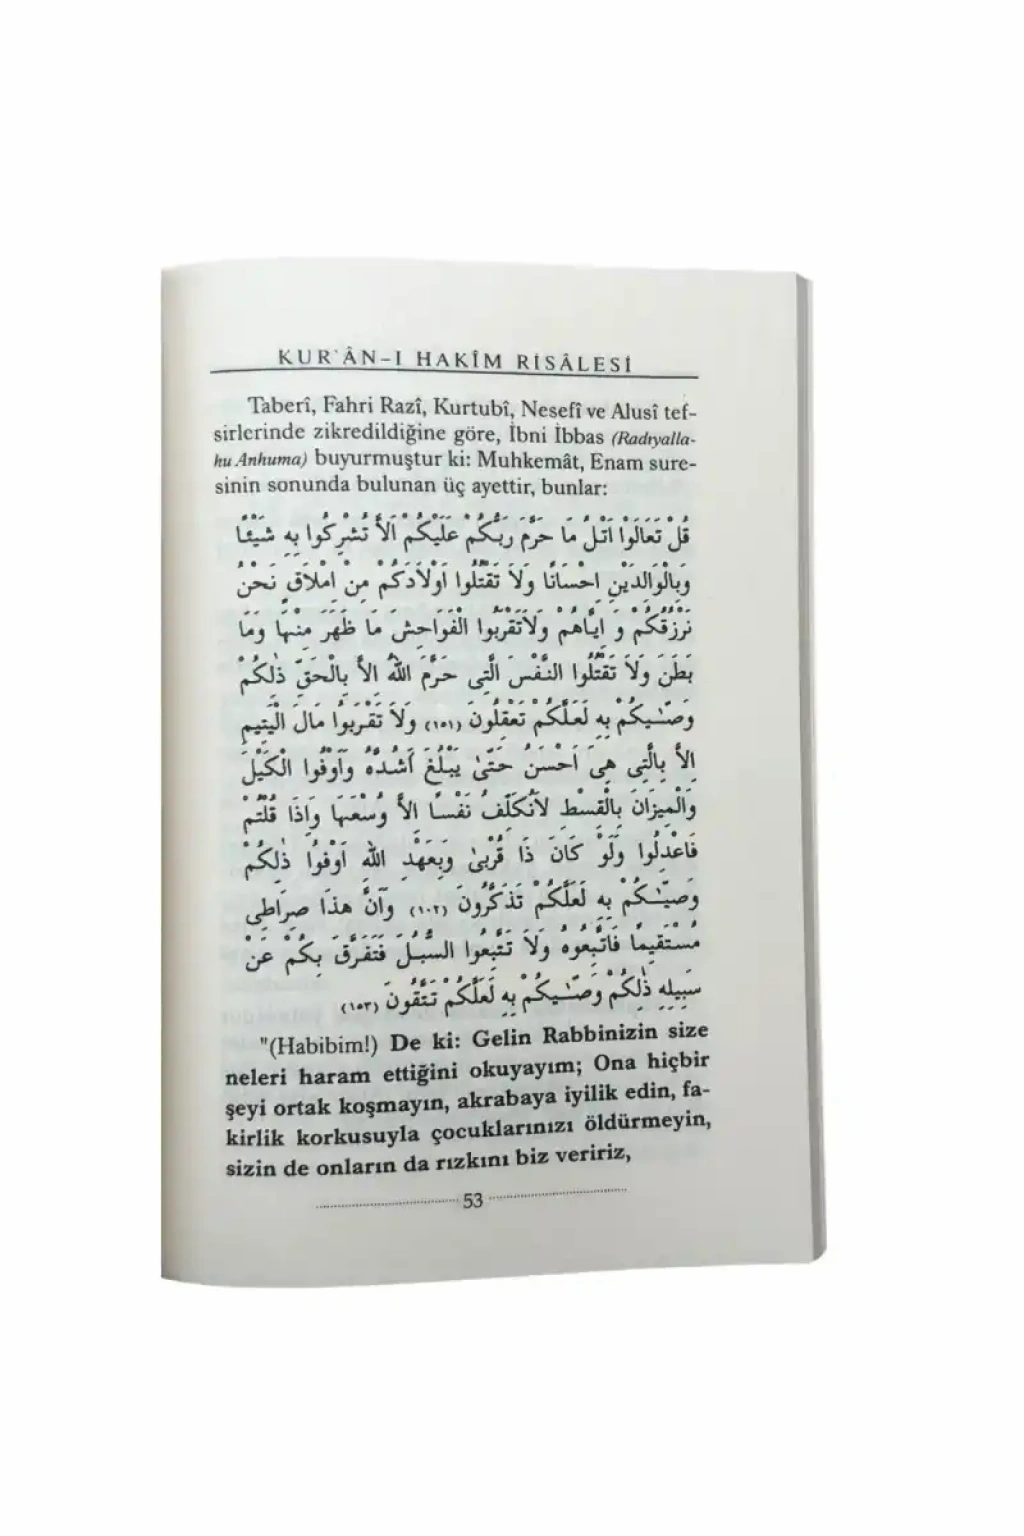 KUR'ÂN-I HAKÎM RİSÂLESİ
Taberî, Fahri Razî, Kurtubî, Nesefî ve Alusî tef-
sirlerinde zikredildiğine göre, İbni İbbas (Radıyalla-
hu Anhuma) buyurmuştur ki: Muhkemât, Enam sure-
sinin sonunda bulunan üç ayettir, bunlar:
قُلْ تَعَالَوْا اَتْلُ مَا حَرَّمَ رَبُّكُمْ عَلَيْكُمْ اَلاَّ تُشْرِكُوا بِهِ شَيْئًا
وَبِالْوَالِدَيْنِ اِحْسَانًا وَلاَ تَقْتُلُوا اَوْلاَدَكُمْ مِنْ اِمْلاَقٍ نَحْنُ
نَرْزُقُكُمْ وَ اِيَّاهُمْ وَلاَتَقْرَبُوا الْفَوَاحِشَ مَا ظَهَرَ مِنْهَا وَمَا
بَطَنَ وَلاَ تَقْتُلُوا النَّفْسَ الَّتِى حَرَّمَ اللهُ اِلاَّ بِالْحَقِّ ذٰلِكُمْ
وَصّٰيكُمْ بِهِ لَعَلَّكُمْ تَعْقِلُونَ (١٥١) وَلاَ تَقْرَبُوا مَالَ الْيَتِيمِ
اِلاَّ بِالَّتِى هِىَ اَحْسَنُ حَتَّىٰ يَبْلُغَ اَشُدَّهُ وَاَوْفُوا الْكَيْلَ
وَالْمِيزَانَ بِالْقِسْطِ لاَنُكَلِّفُ نَفْسًا اِلاَّ وُسْعَهَا وَاِذَا قُلْتُمْ
فَاعْدِلُوا وَلَوْ كَانَ ذَا قُرْبىٰ وَبِعَهْدِ اللهِ اَوْفُوا ذٰلِكُمْ
وَصّٰيكُمْ بِهِ لَعَلَّكُمْ تَذَكَّرُونَ (١٠٢) وَاَنَّ هٰذَا صِرَاطِى
مُسْتَقِيمًا فَاتَّبِعُوهُ وَلاَ تَتَّبِعُوا السُّبُلَ فَتَفَرَّقَ بِكُمْ عَنْ
سَبِيلِهِ ذٰلِكُمْ وَصّٰيكُمْ بِهِ لَعَلَّكُمْ تَتَّقُونَ (١٥٣)
"(Habibim!) De ki: Gelin Rabbinizin size
neleri haram ettiğini okuyayım; Ona hiçbir
şeyi ortak koşmayın, akrabaya iyilik edin, fa-
kirlik korkusuyla çocuklarınızı öldürmeyin,
sizin de onların da rızkını biz veririz,
53